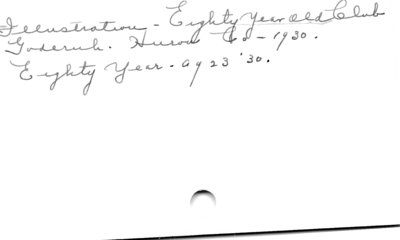 Illustration - Eighty Year Old Club
Goderich. Huron Co - 1930.
Eighty Year - ag 23 '30.